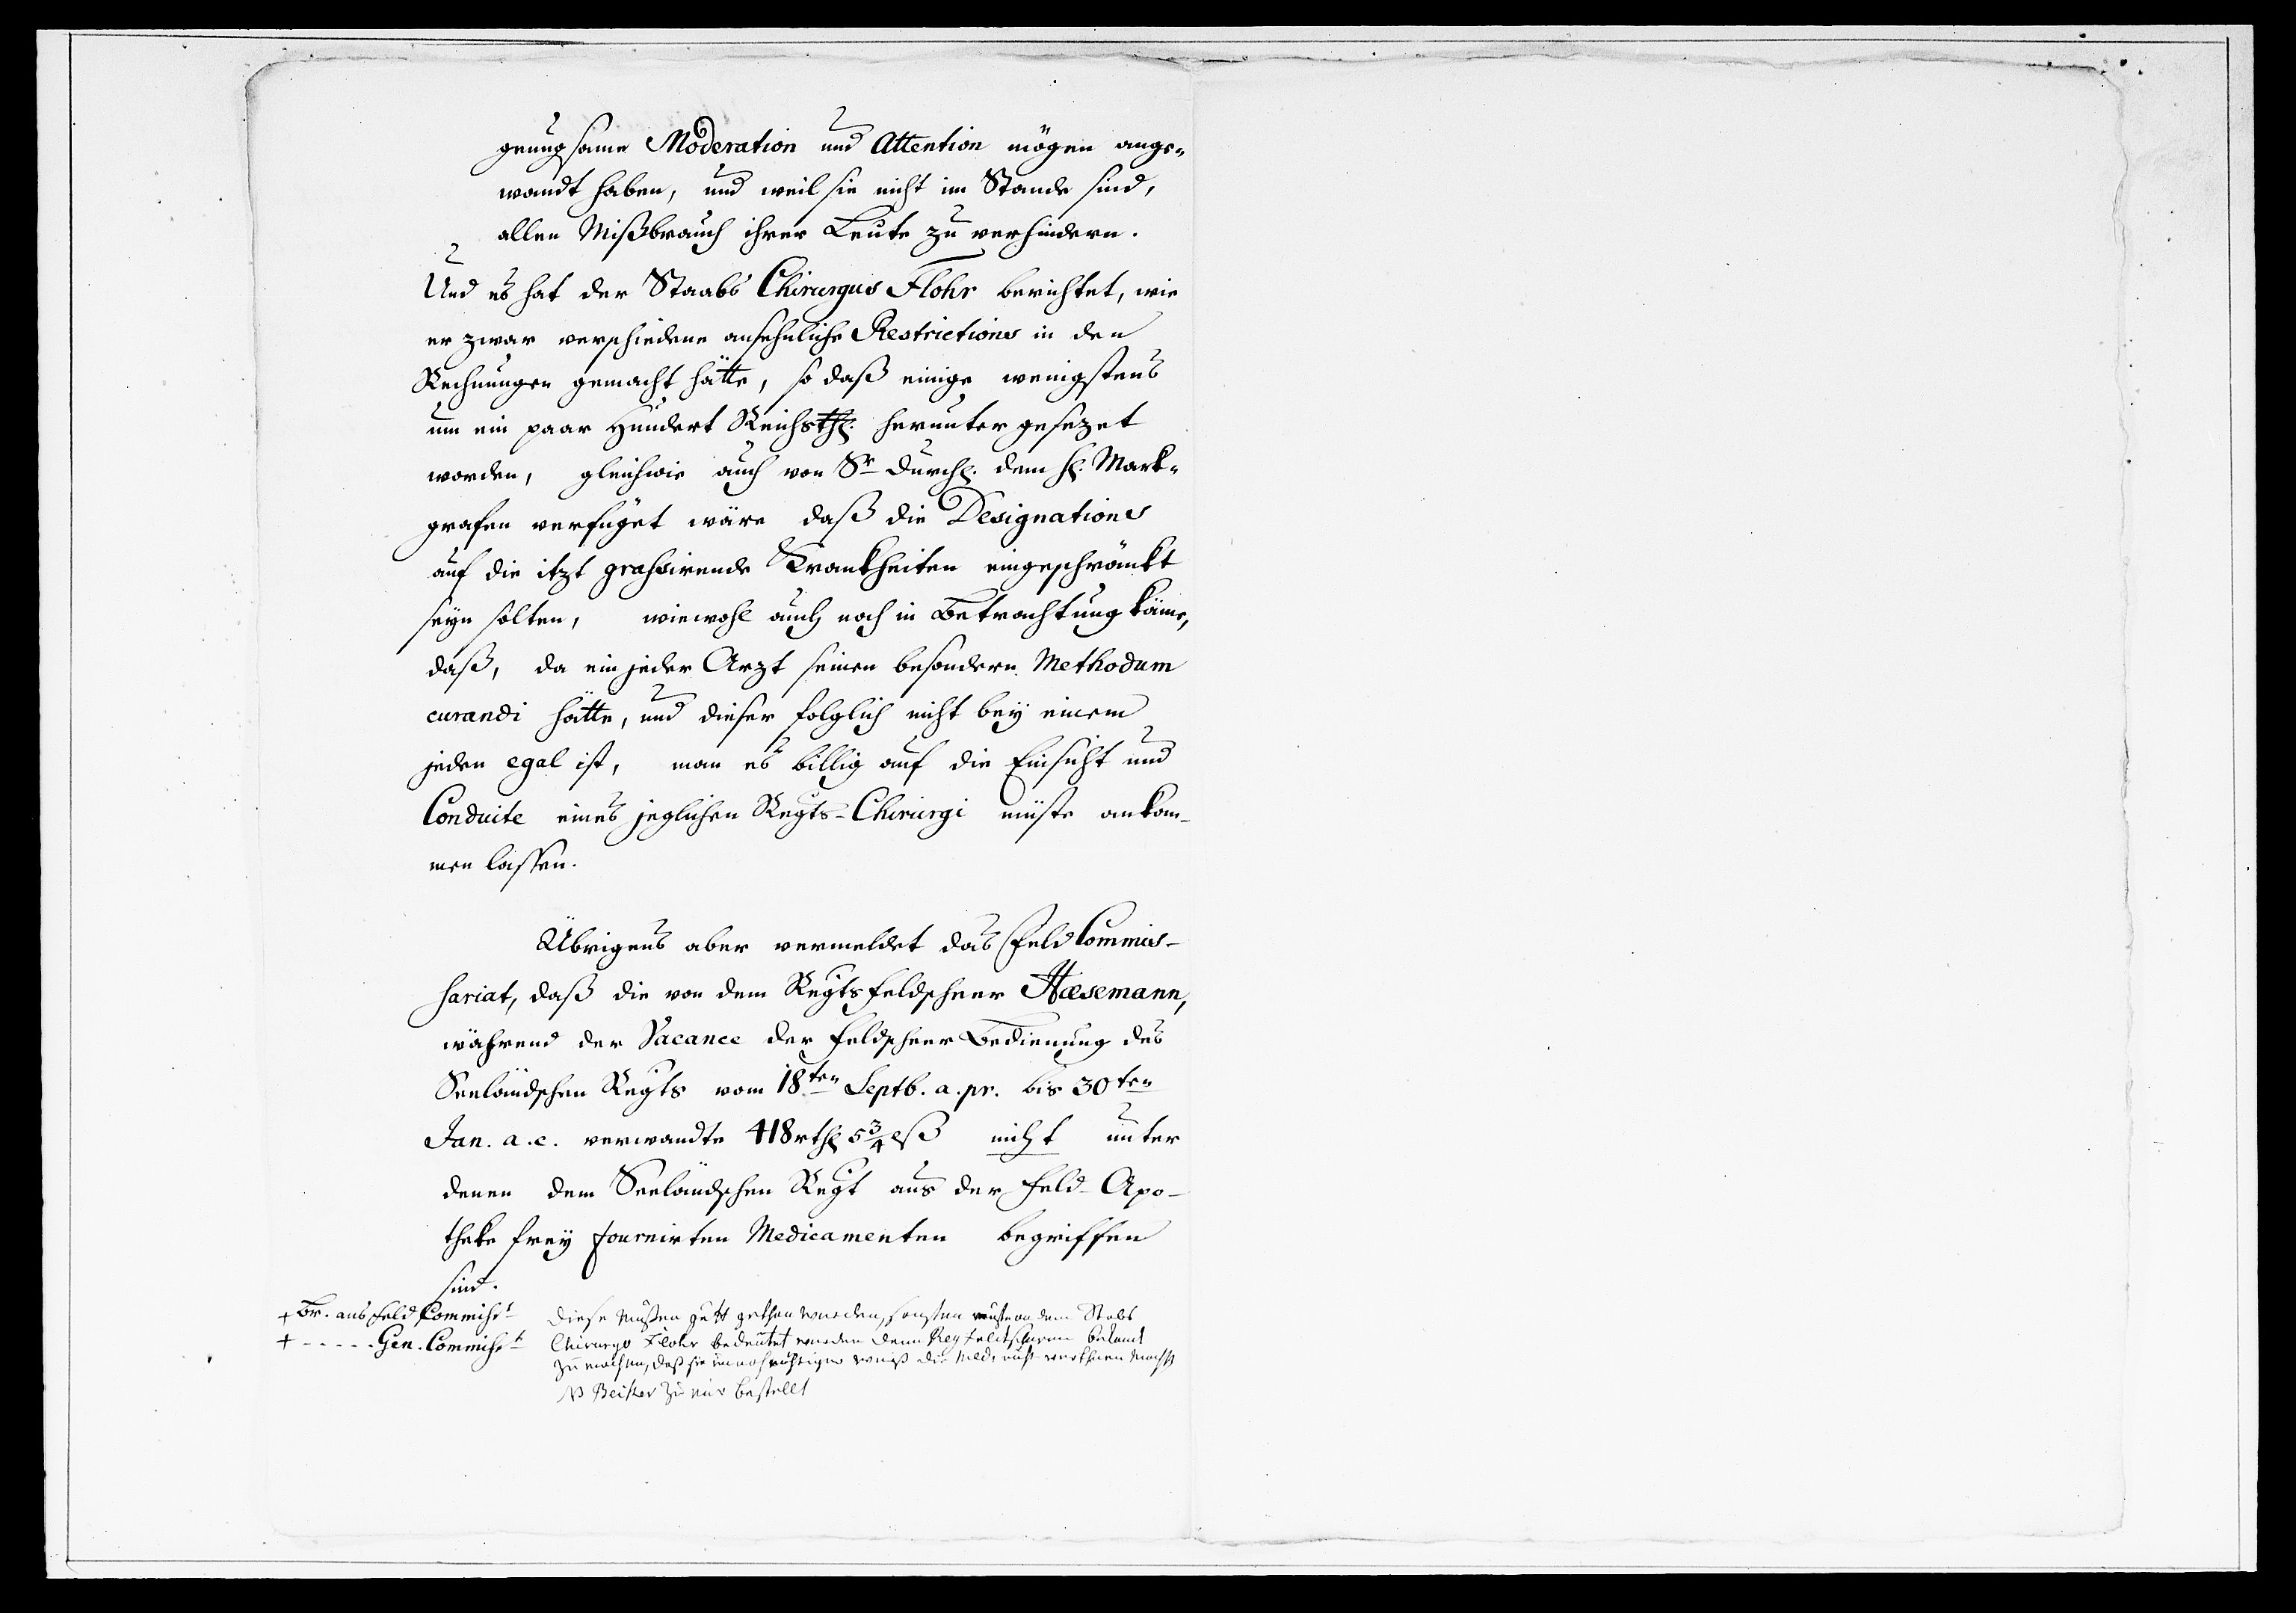 genugsame Moderation und Attention mögen ange„
wandt haben, und weil sie nicht im Stande sind,
allen Mißbrauch ihrer Leute zu verhindern.
Und es hat der Staabs Chirurgus Flohr berichtet, wie
er zwar verschiedene ansehnliche Restrictions in den
Rechnungen gemacht hätte, so daß einige wenigstens
um ein paar Hundert Reichsthl. herunter gesezet
worden, gleichwie auch von Sr Durchl. dem H. Mark„
grafen verfüget wäre daß die Designationes
auf die itzt grassirende Krankheiten eingeschränkt
seyn solten, wiewohl auch noch in Betrachtung käme,
daß, da ein jeder Arzt seinen besondern Methodum
curandi hätte, und dieser folglich nicht bey einem
jeden egal ist, man es billig auf die Einsicht und
Conduite eines jeglichen Regts-Chirurgi müste ankom-
men lassen.
Übrigens aber vermeldet das Feld Commis-
sariat, daß die von dem Regtsfeldscheer Hæsemann,
während der Vacance der Feldscheer Bedienung des
Seeländschen Regts vom 18ten Septb. a. pr. bis 30ten
Jan. a. c. verwandte 418 rthl 5¾ lß nicht unter
denen dem Seeländschen Regt aus der Feld-Apo-
theke frey fournirten Medicamenten begriffen
sind.
+ Br. ans Feld Commisst
+ - - - - - Gen. Commisst
Diese müßen gutt gethan werden, sonsten müste an dem Stabs
Chirurgo Flohr bedeutet werden denn Reg feldtscheren bekant
zu machen, daß sie die Med. nicht
NB zu mir bestellt